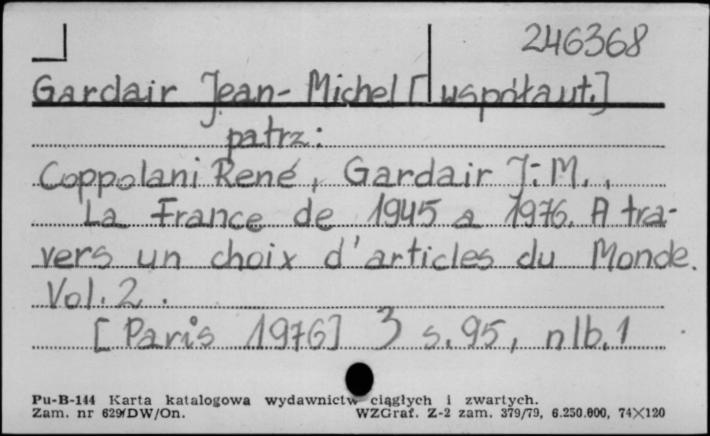 246368
Gardair Jean-Michel [współaut.]
patrz:
Coppolani René, Gardair J.-M.,
La France de 1945 a 1976. A tra-
vers un choix d'articles du Monde.
Vol. 2.
[Paris 1976] 3 s. 95, nlb. 1
Pu-B-144 Karta katalogowa wydawnictw ciągłych i zwartych.
Zam. nr 629/DW/On. WZGraf. Z-2 zam. 379/79, 6.250.000, 74×120